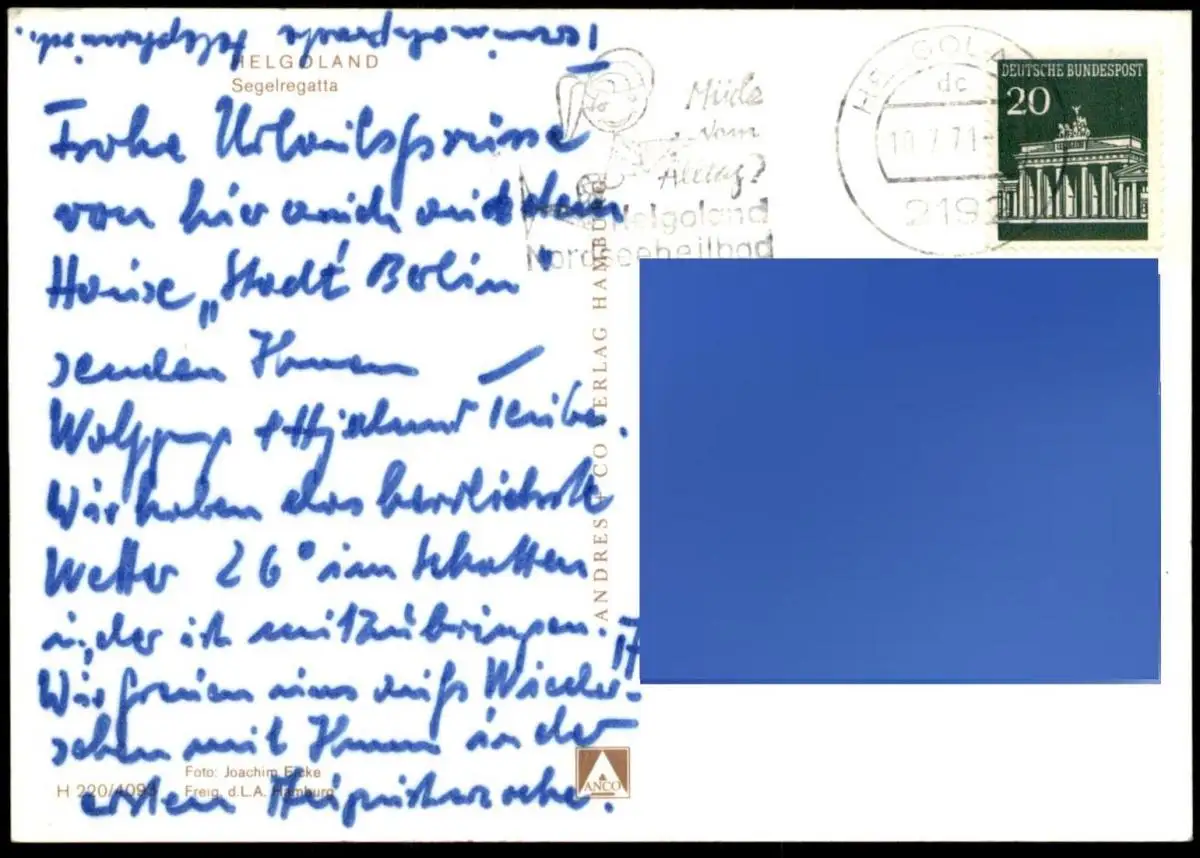 Terminabsprache telephonisch.
HELGOLAND
Segelregatta
Frohe Urlaubsgrüsse
von hier auch aus dem
Hause „Stadt Berlin"
senden Ihnen
Wolfgang +
Wir haben das herrlichste
Wetter 26° im Schatten
ist mitzubringen.
Wir freuen uns aufs Wieder-
sehen mit Ihnen in der
ersten Augustwoche.
Foto: Joachim Eicke
H 220/409
Freig. d.L.A. Hamburg
ANDRES + CO VERLAG HAMBURG
ANCO
Müde
vom
Alltag?
Helgoland
Nordseeheilbad
HELGOLAND
dc
10.7.71-
2192
DEUTSCHE BUNDESPOST
20